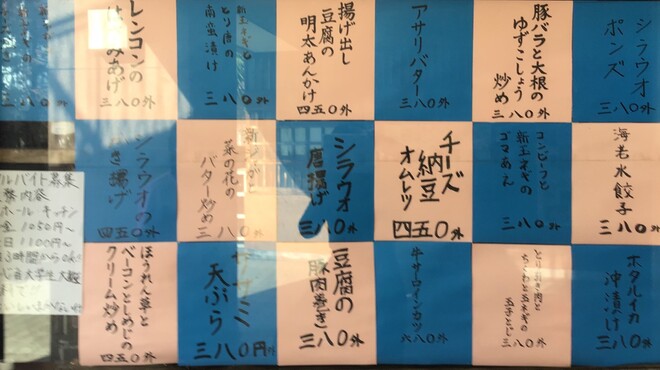 シラウオ
ポンズ
三八〇外
豚バラと大根の
ゆずこしょう
炒め
三八〇外
アサリバター
三八〇外
揚げ出し
豆腐の
明太あんかけ
四五〇外
新玉ネギと
とり唐の
南蛮漬け
三八〇外
レンコンの
はさみあげ
三八〇外
海老水餃子
三八〇外
コンビーフと
新玉ネギの
ゴマあえ
三八〇外
チーズ
納豆
オムレツ
四五〇外
シラウオ
唐揚げ
三八〇外
菜の花の
バター炒め
三八〇外
シラウオの
かき揚げ
三八〇外
ホタルイカ
沖漬け
三八〇外
とり引き肉と
ちくわと玉ネギの
玉子とじ
三八〇外
牛サーロインカツ
六八〇外
豆腐の
豚肉巻き
三八〇外
ササミ
天ぷら
三八〇円外
ほうれん草と
ベーコンとしめじの
クリーム炒め
四五〇外
ルバイト募集
務内容
ホール キッチン
1050円〜
日 1100円〜
3時間からOK